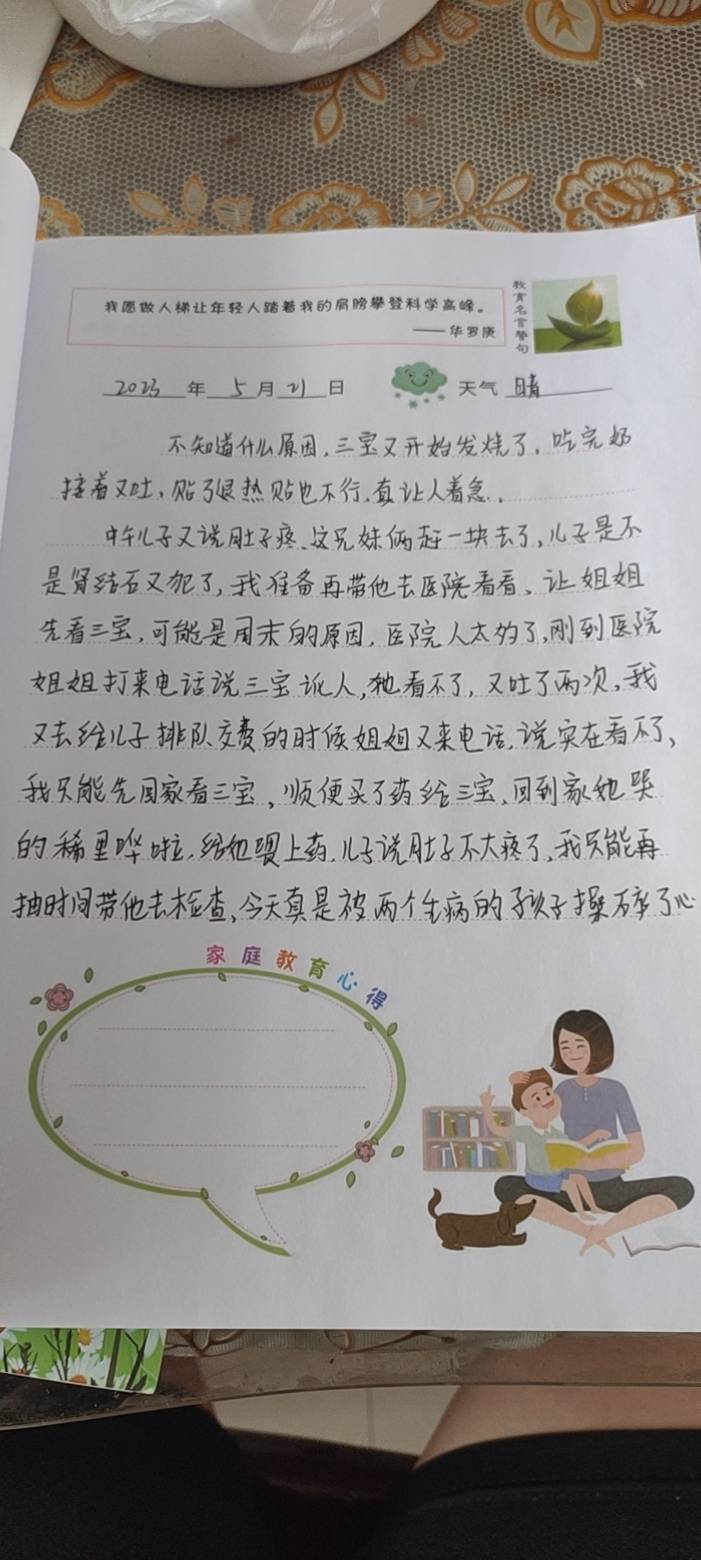 我愿做人梯让年轻人踏着我的肩膀攀登科学高峰。
——华罗庚
教育名言警句
2023年5月21日 天气 晴
不知道什么原因,三宝又开始发烧了,吃完奶
接着又吐,贴了退热贴也不行,真让人着急.
中午儿子又说肚子疼、这兄妹俩赶一块去了,儿子是不
是肾结石又犯了,我准备再带他去医院看看、让姐姐
先看三宝,可能是周末的原因,医院人太多了,刚到医院
姐姐打来电话说三宝讹人,她看不了,又吐了两次,我
又去给儿子排队交费的时候姐姐又来电话,说实在看不了,
我只能先回家看三宝,顺便买了药给三宝,回到家她哭
的稀里哗啦,给她喂上药,儿子说肚子不大疼了,我只能再
抽时间带他去检查,今天真是被两个生病的孩子操碎了心
家庭教育心得